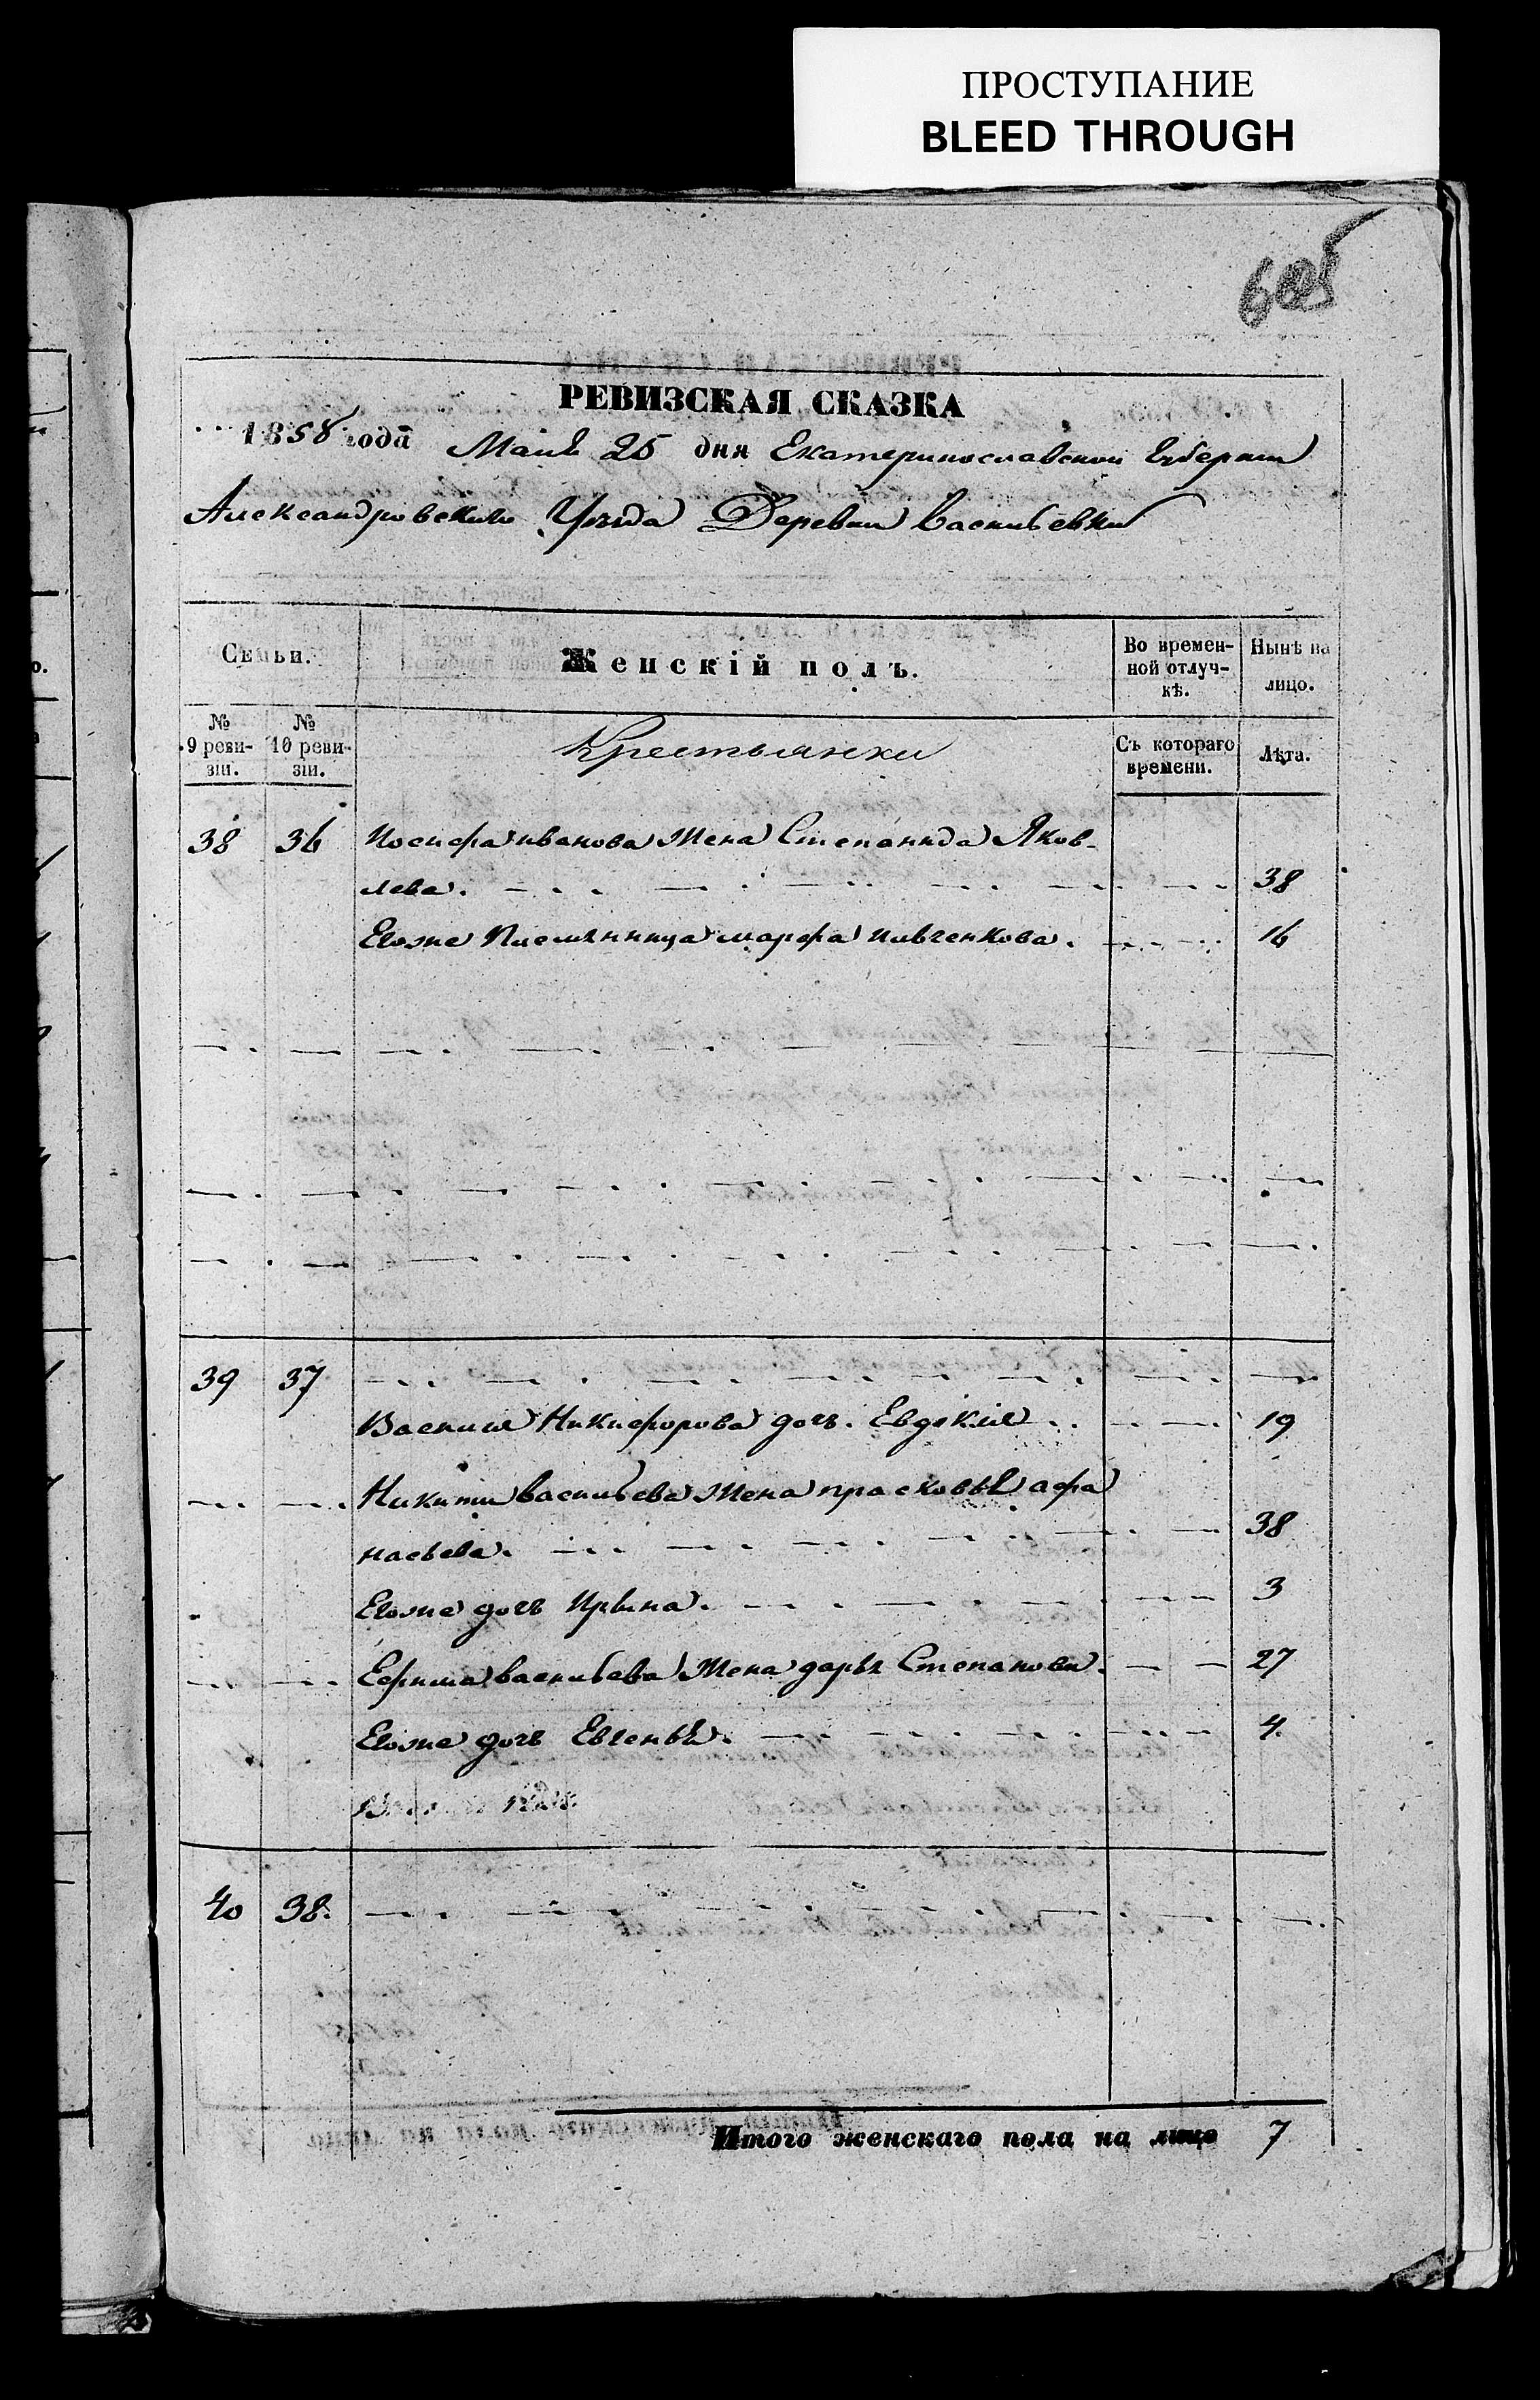 ПРОСТУПАНИЕ
BLEED THROUGH
РЕВИЗСКАЯ СКАЗКА
1858 года Маія 25 дня Екатеринославской Губерніи
Александровскаго Уѣзда Деревни Васильевки
Семьи.
Женскій полъ.
Во времен-
ной отлуч-
кѣ.
Нынѣ на
лицо.
№
9 реви-
зіи.
№
10 реви-
зіи.
Крестьянки
Съ котораго
времени.
Лѣта.
38 36 Иосифа иванова Жена Степанида Яков-
лева. 38
Егоже Племянница марфа 16
39 37
Василия Никифорова доч. Евдокия 19
Никиты васильева Жена прасковья афа
насьева. 38
Егоже дочь Ирина. 3
Ефима васильева Жена дарья Степанова. 27
Егоже дочь Евгенья. 4
40 38.
Итого женскаго пола на лицо 7